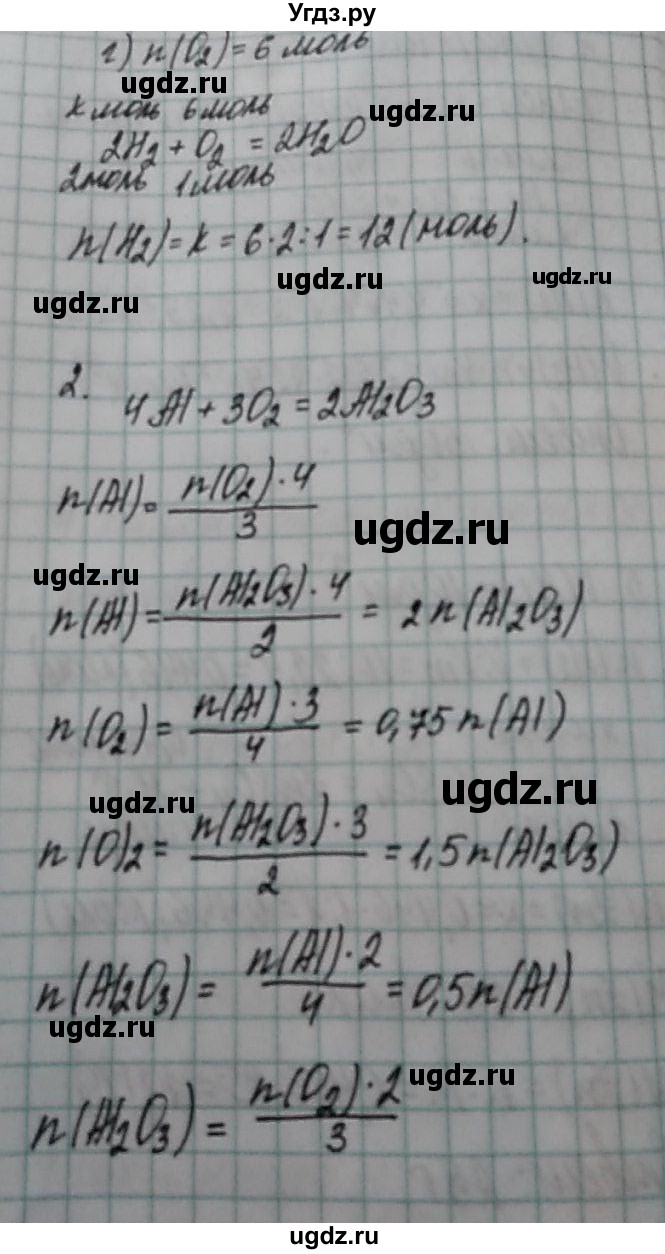 Угдз.ру
г) n(O₂) = 6 моль
ugdz.ru
x моль 6 моль
ugdz.ru
2H₂ + O₂ = 2H₂O
2моль 1моль
n(H₂) = x = 6·2:1 = 12 (моль).
ugdz.ru
ugdz.ru
2.
4Al + 3O₂ = 2Al₂O₃
n(Al) = n(O₂)·4 / 3
ugdz.ru
ugdz.ru
n(Al) = n(Al₂O₃)·4 / 2 = 2n(Al₂O₃)
n(O₂) = n(Al)·3 / 4 = 0,75n(Al)
ugdz.ru
ugdz.ru
n(O)₂ = n(Al₂O₃)·3 / 2 = 1,5n(Al₂O₃)
n(Al₂O₃) = n(Al)·2 / 4 = 0,5n(Al)
ugdz.ru
ugdz.ru
n(Al₂O₃) = n(O₂)·2 / 3
ugdz.ru